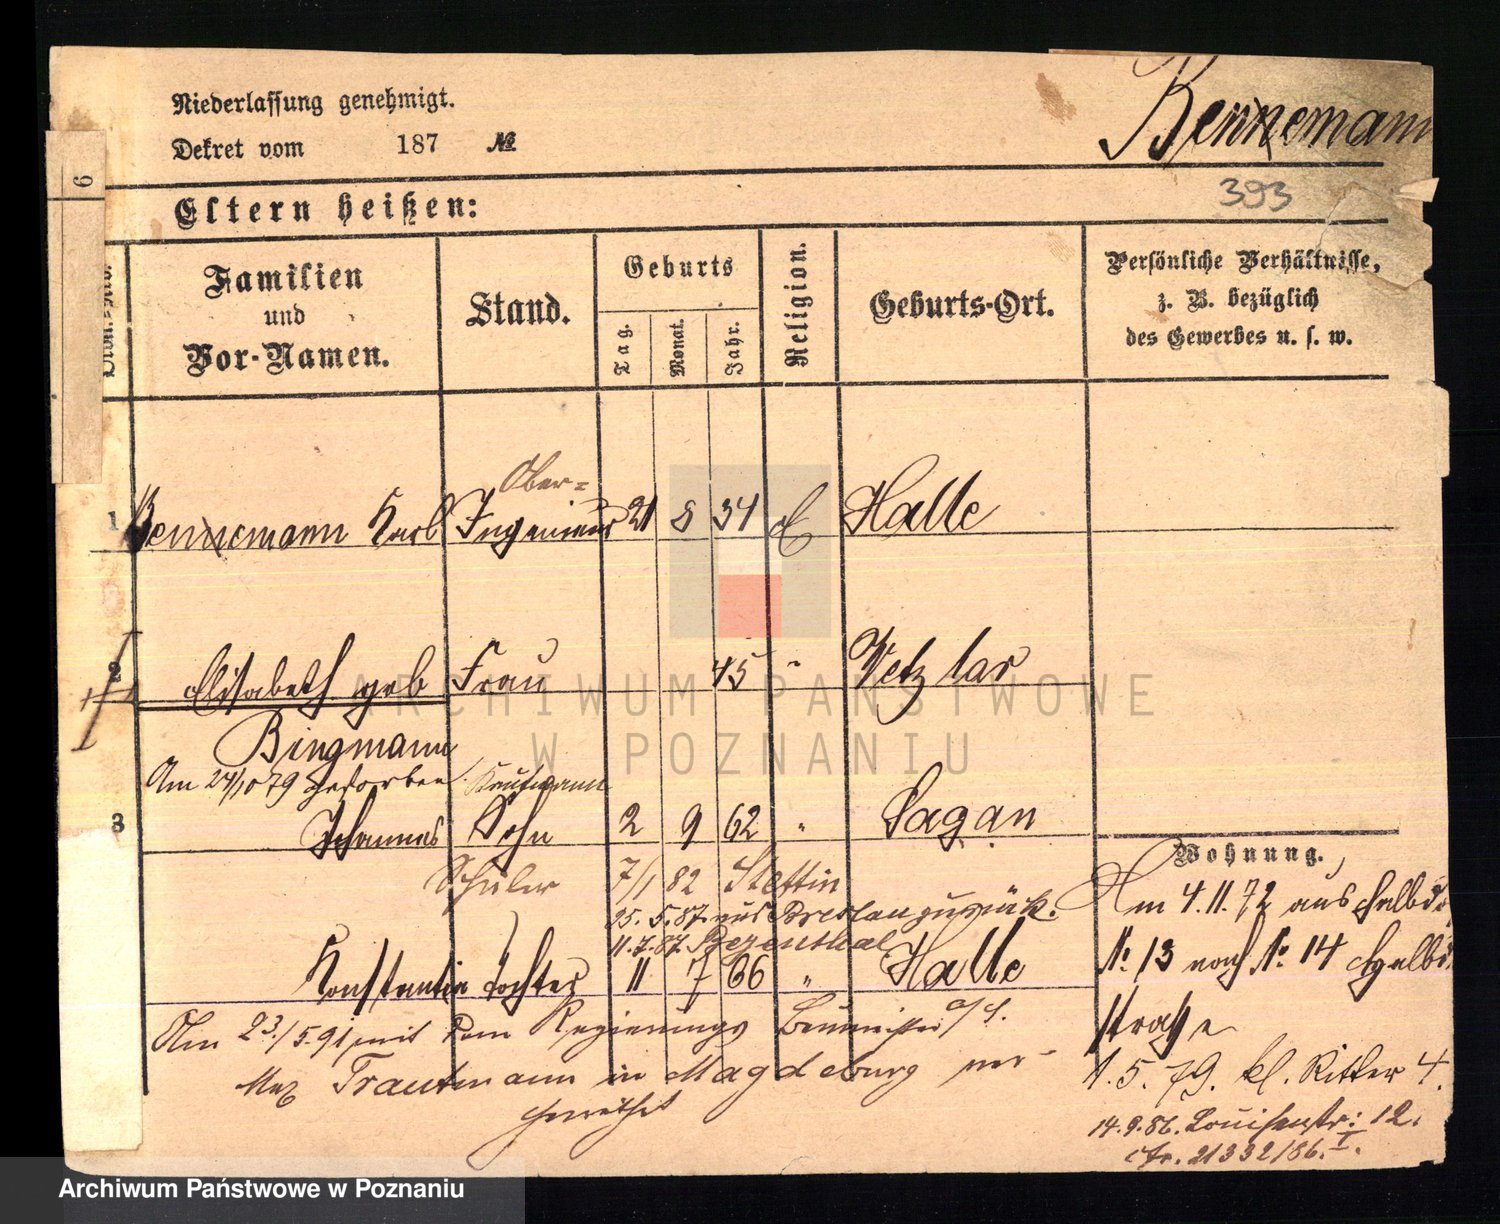 Niederlassung genehmigt.
Dekret vom 187 №
Bennemann
393
6
Eltern heißen:
Familien und Vor-Namen.
Stand.
Geburts
Tag.
Monat.
Jahr.
Religion.
Geburts-Ort.
Persönliche Verhältnisse,
z. B. bezüglich
des Gewerbes u. s. w.
Ober-
1 Bennemann Karl Ingenieur 21 8 34 E Halle
2 Elisabeth geb Frau 45 " Wetzlar
Bingmann
Am 24/10 79 gestorben.
Kaufmann
3 Johannes Sohn 2 9 62 " Sagan
Schüler 7/1 82 Stettin
25. 5.87. aus Breslau zurück.
11.7.87.
Konstantia Tochter 11 7 66 " Halle
Am 23./5.91 mit dem Regierungs Baumeister a/D.
Max Trautmann in Magdeburg ver-
heirathet
Wohnung.
Am 4.11.72 aus Halbd.
№ 13 nach № 14 Halbd.
straße
1.5.79. kl. Ritter 4.
14.9.86. Louisenstr: 12.
21332/86. I.
ARCHIWUM PAŃSTWOWE
W POZNANIU
Archiwum Państwowe w Poznaniu